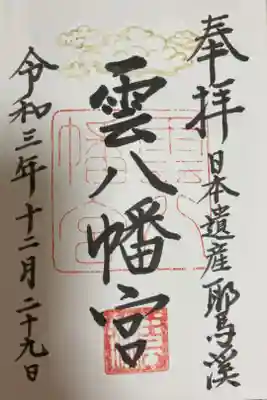 奉拝
日本遺産耶馬溪
雲八幡宮
令和三年十二月二十九日